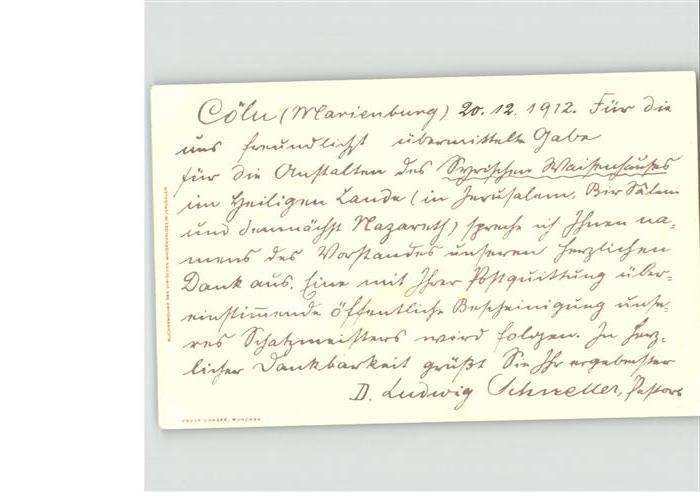 Cöln (Marienburg) 20. 12. 1912. Für die
uns freundlichst übermittelte Gabe
für die Anstalten des Syrischen Waisenhauses
im Heiligen Lande (in Jerusalem, Bir Sâlem
und demnächst Nazareth) spreche ich Ihnen na-
mens des Vorstandes unseren herzlichen
Dank aus. Eine mit Ihrer Postquittung über-
einstimmende öffentliche Bescheinigung unse-
res Schatzmeisters wird folgen. In herz-
licher Dankbarkeit grüßt Sie Ihr ergebenster
D. Ludwig Schneller, Pastor